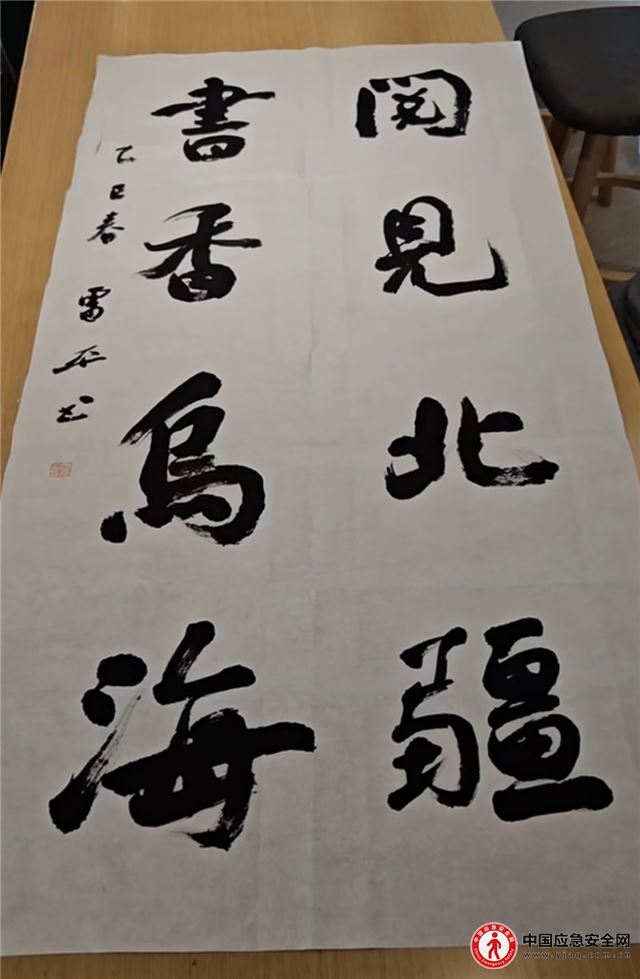 閱見北疆
書香烏海
乙巳春
雷平书
中国应急安全网
www.yjaq.com.cn